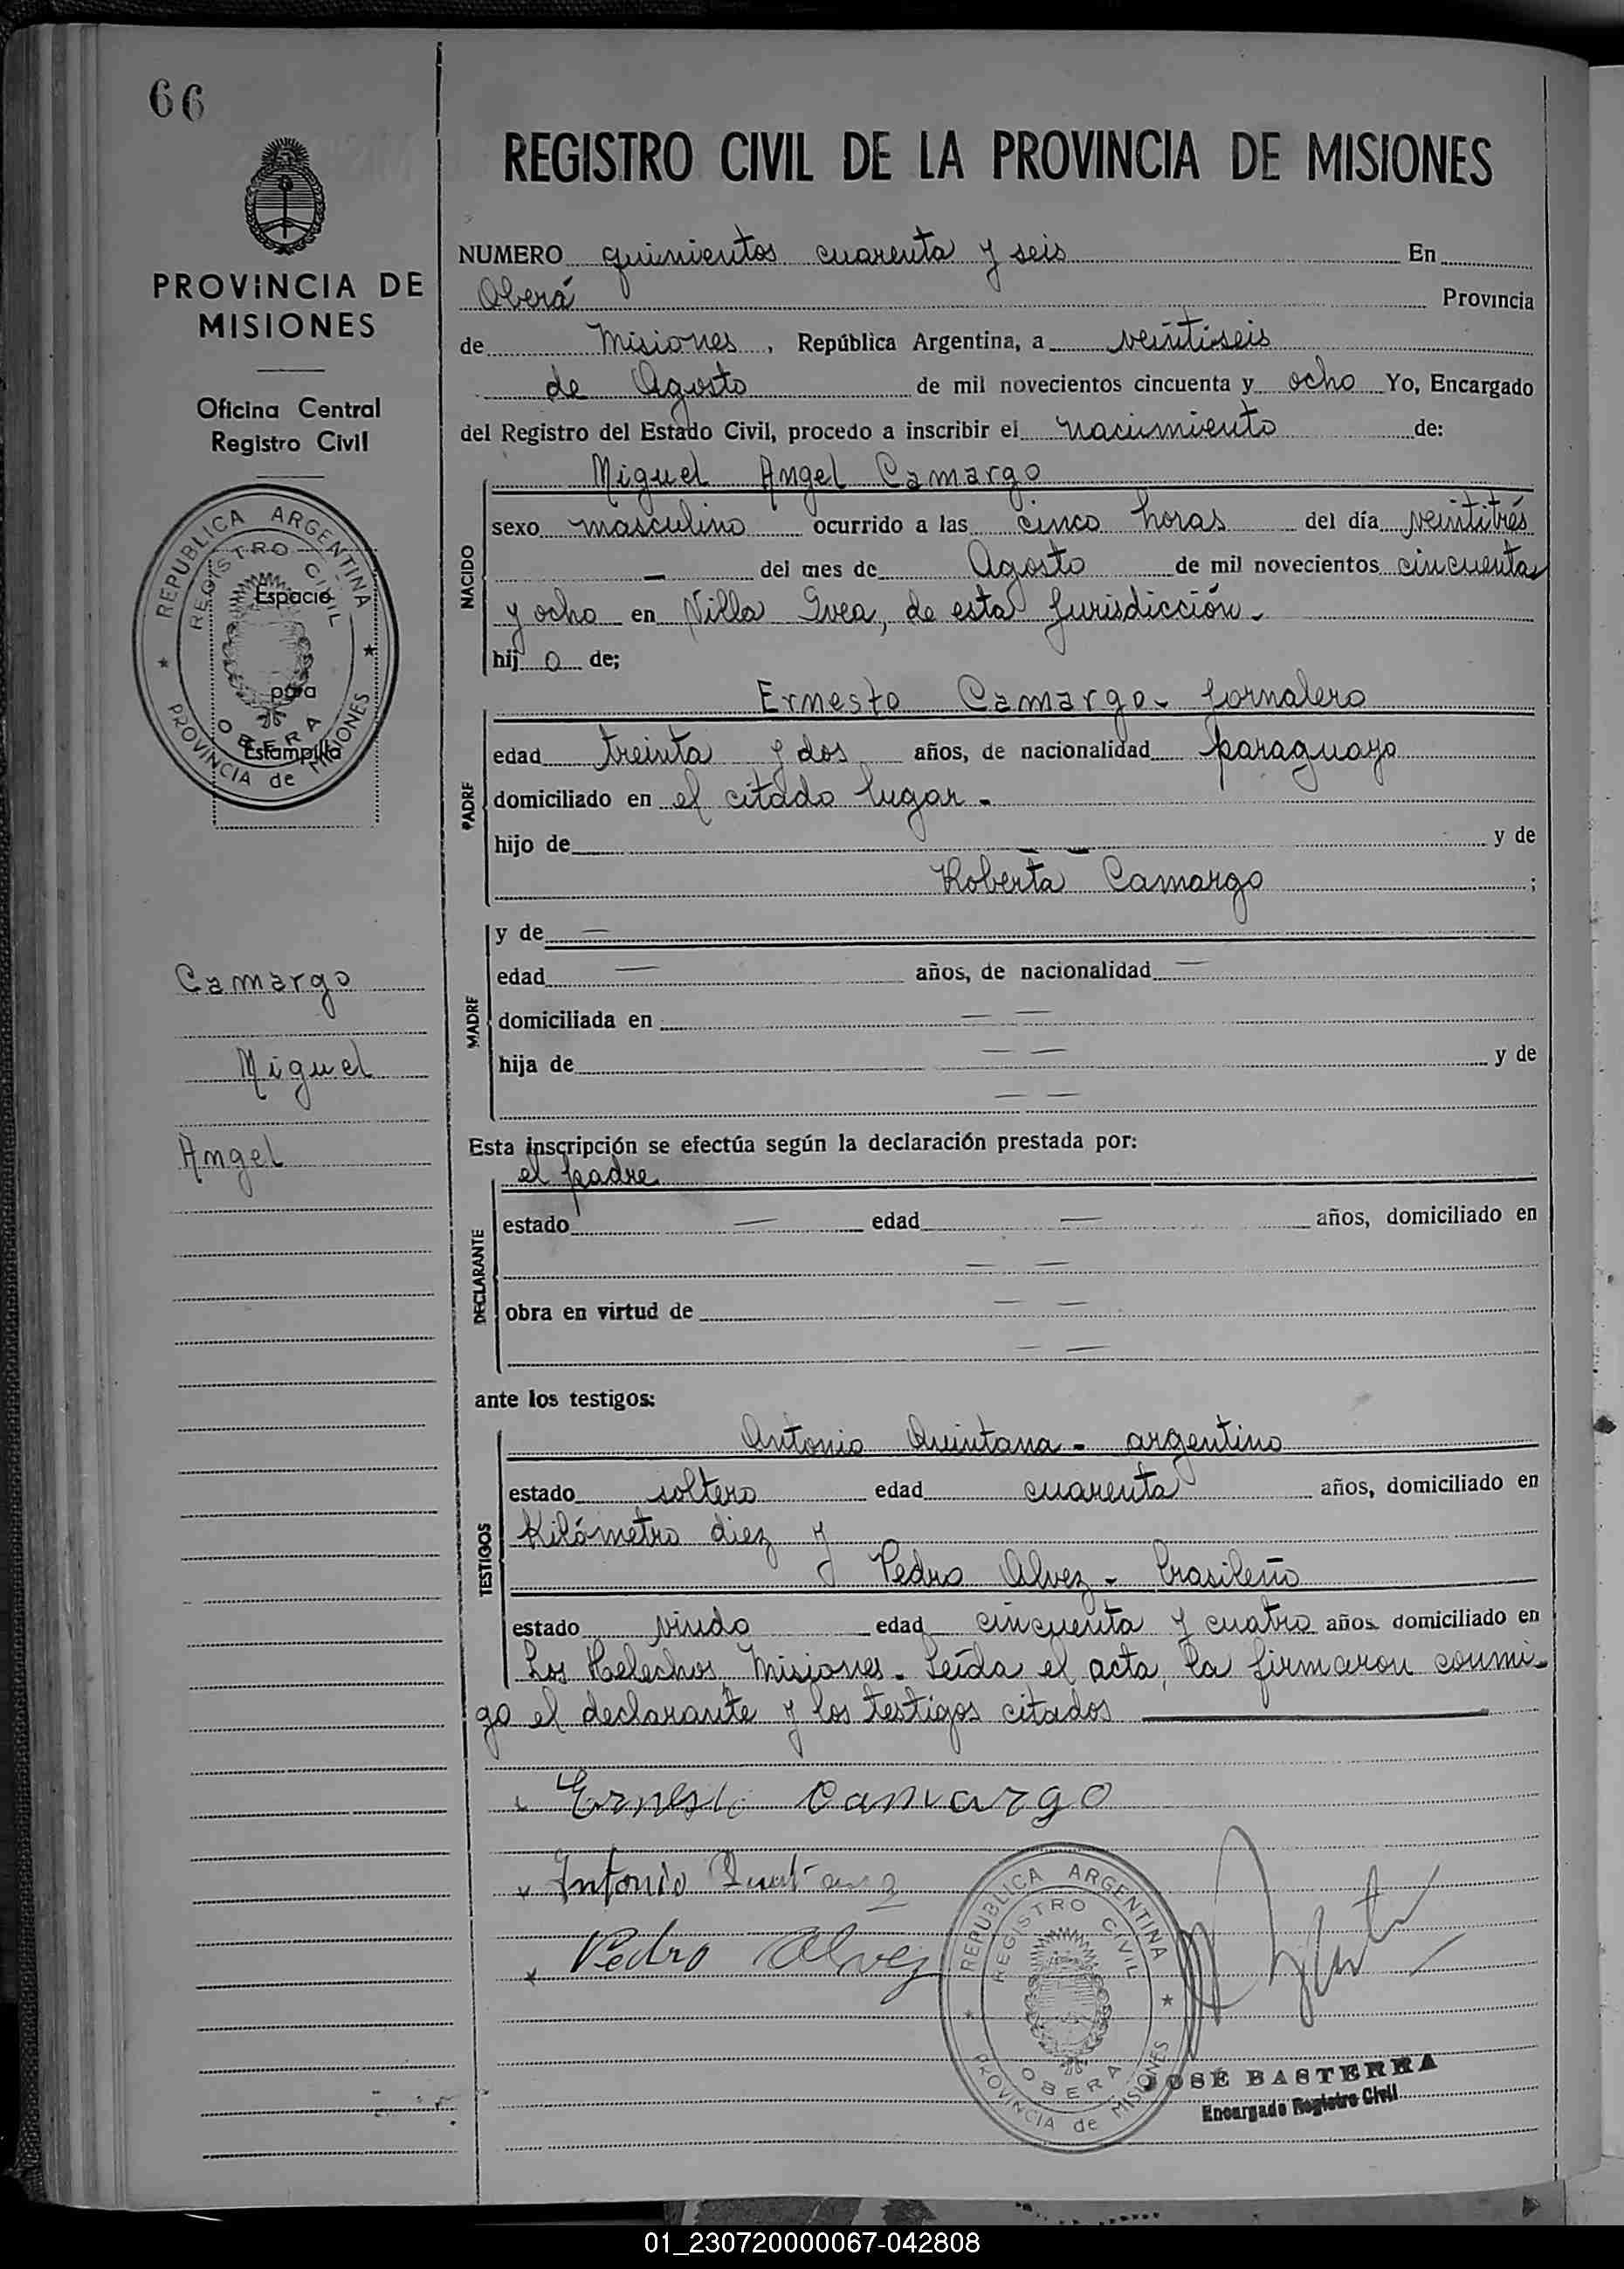 66
PROVINCIA DE
MISIONES
Oficina Central
Registro Civil
REPUBLICA ARGENTINA
REGISTRO CIVIL
Espacio
para
Estampilla
OBERA
PROVINCIA de MISIONES
Camargo
Miguel
Angel
REGISTRO CIVIL DE LA PROVINCIA DE MISIONES
NUMERO quinientos cuarenta y seis En
Oberá Provincia
de Misiones, República Argentina, a veintiseis
de Agosto de mil novecientos cincuenta y ocho Yo, Encargado
del Registro del Estado Civil, procedo a inscribir el nacimiento de:
Miguel Angel Camargo
NACIDO
sexo masculino ocurrido a las cinco horas del día veintitrés
— del mes de Agosto de mil novecientos cincuenta
y ocho en Villa Svea, de esta Jurisdicción.-
hij o de;
Ernesto Camargo - Jornalero
PADRE
edad treinta y dos años, de nacionalidad paraguayo
domiciliado en el citado lugar -
hijo de — — y de
Roberta Camargo ;
MADRE
y de —
edad — años, de nacionalidad —
domiciliada en — —
hija de — — y de
— —
Esta inscripción se efectúa según la declaración prestada por:
el padre
DECLARANTE
estado — edad — años, domiciliado en
— —
obra en virtud de — —
— —
ante los testigos:
Antonio Quintana - argentino
TESTIGOS
estado soltero edad cuarenta años, domiciliado en
Kilómetro diez y
Pedro Alvez - brasileño
estado viudo edad cincuenta y cuatro años domiciliado en
Los Helechos, Misiones. Leída el acta, la firmaron conmi-
go el declarante y los testigos citados
Ernesto Camargo
Antonio Quintana
Pedro Alvez
REPUBLICA ARGENTINA
REGISTRO CIVIL
OBERA
PROVINCIA de MISIONES
JOSÉ BASTERRA
Encargado Registro Civil
01_230720000067-042808